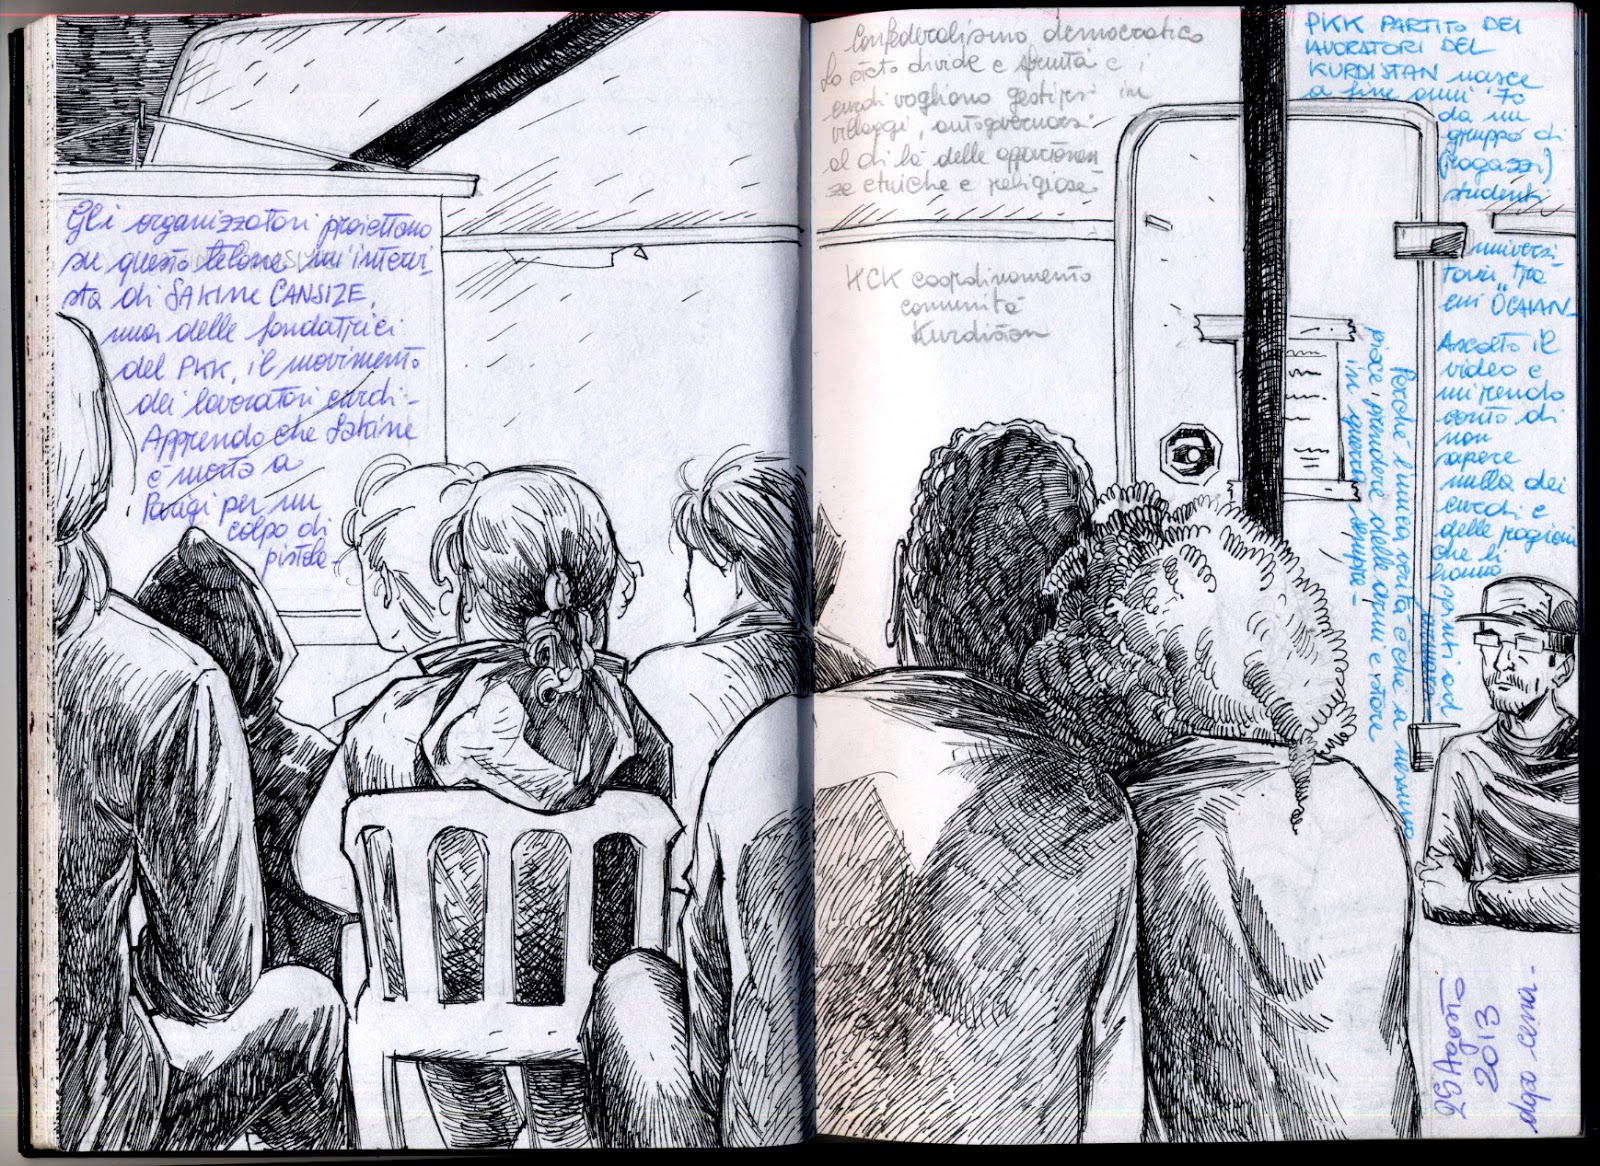 Gli organizzatori proiettano
su questo telone un'intervi_
sta di SAKINE CANSIZE,
una delle fondatrici
del PKK, il movimento
dei lavoratori curdi -
Apprendo che Sakine
è morta a
Parigi per un
colpo di
pistola -
Confederalismo democratico
Lo stato divide e sfrutta e i
curdi vogliono gestirsi in
villaggi, autogovernarsi
al di là delle appartenen
ze etniche e religiose
KCK coordinamento
comunità
Kurdistan
PKK PARTITO DEI
LAVORATORI DEL
KURDISTAN nasce
a fine anni '70
da un
gruppo di
(ragazzi)
studenti
universi
tari, tra
cui ÖCALAN_
Ascolto il
video e
mi rendo
conto di
non
sapere
nulla dei
curdi e
delle ragioni
che li
hanno
spinti ad
armarsi
Perché l'unica verità è che a nessuno
piace prendere delle armi e stare
in guerra sempre -
25 Agosto
2013
dopo cena -